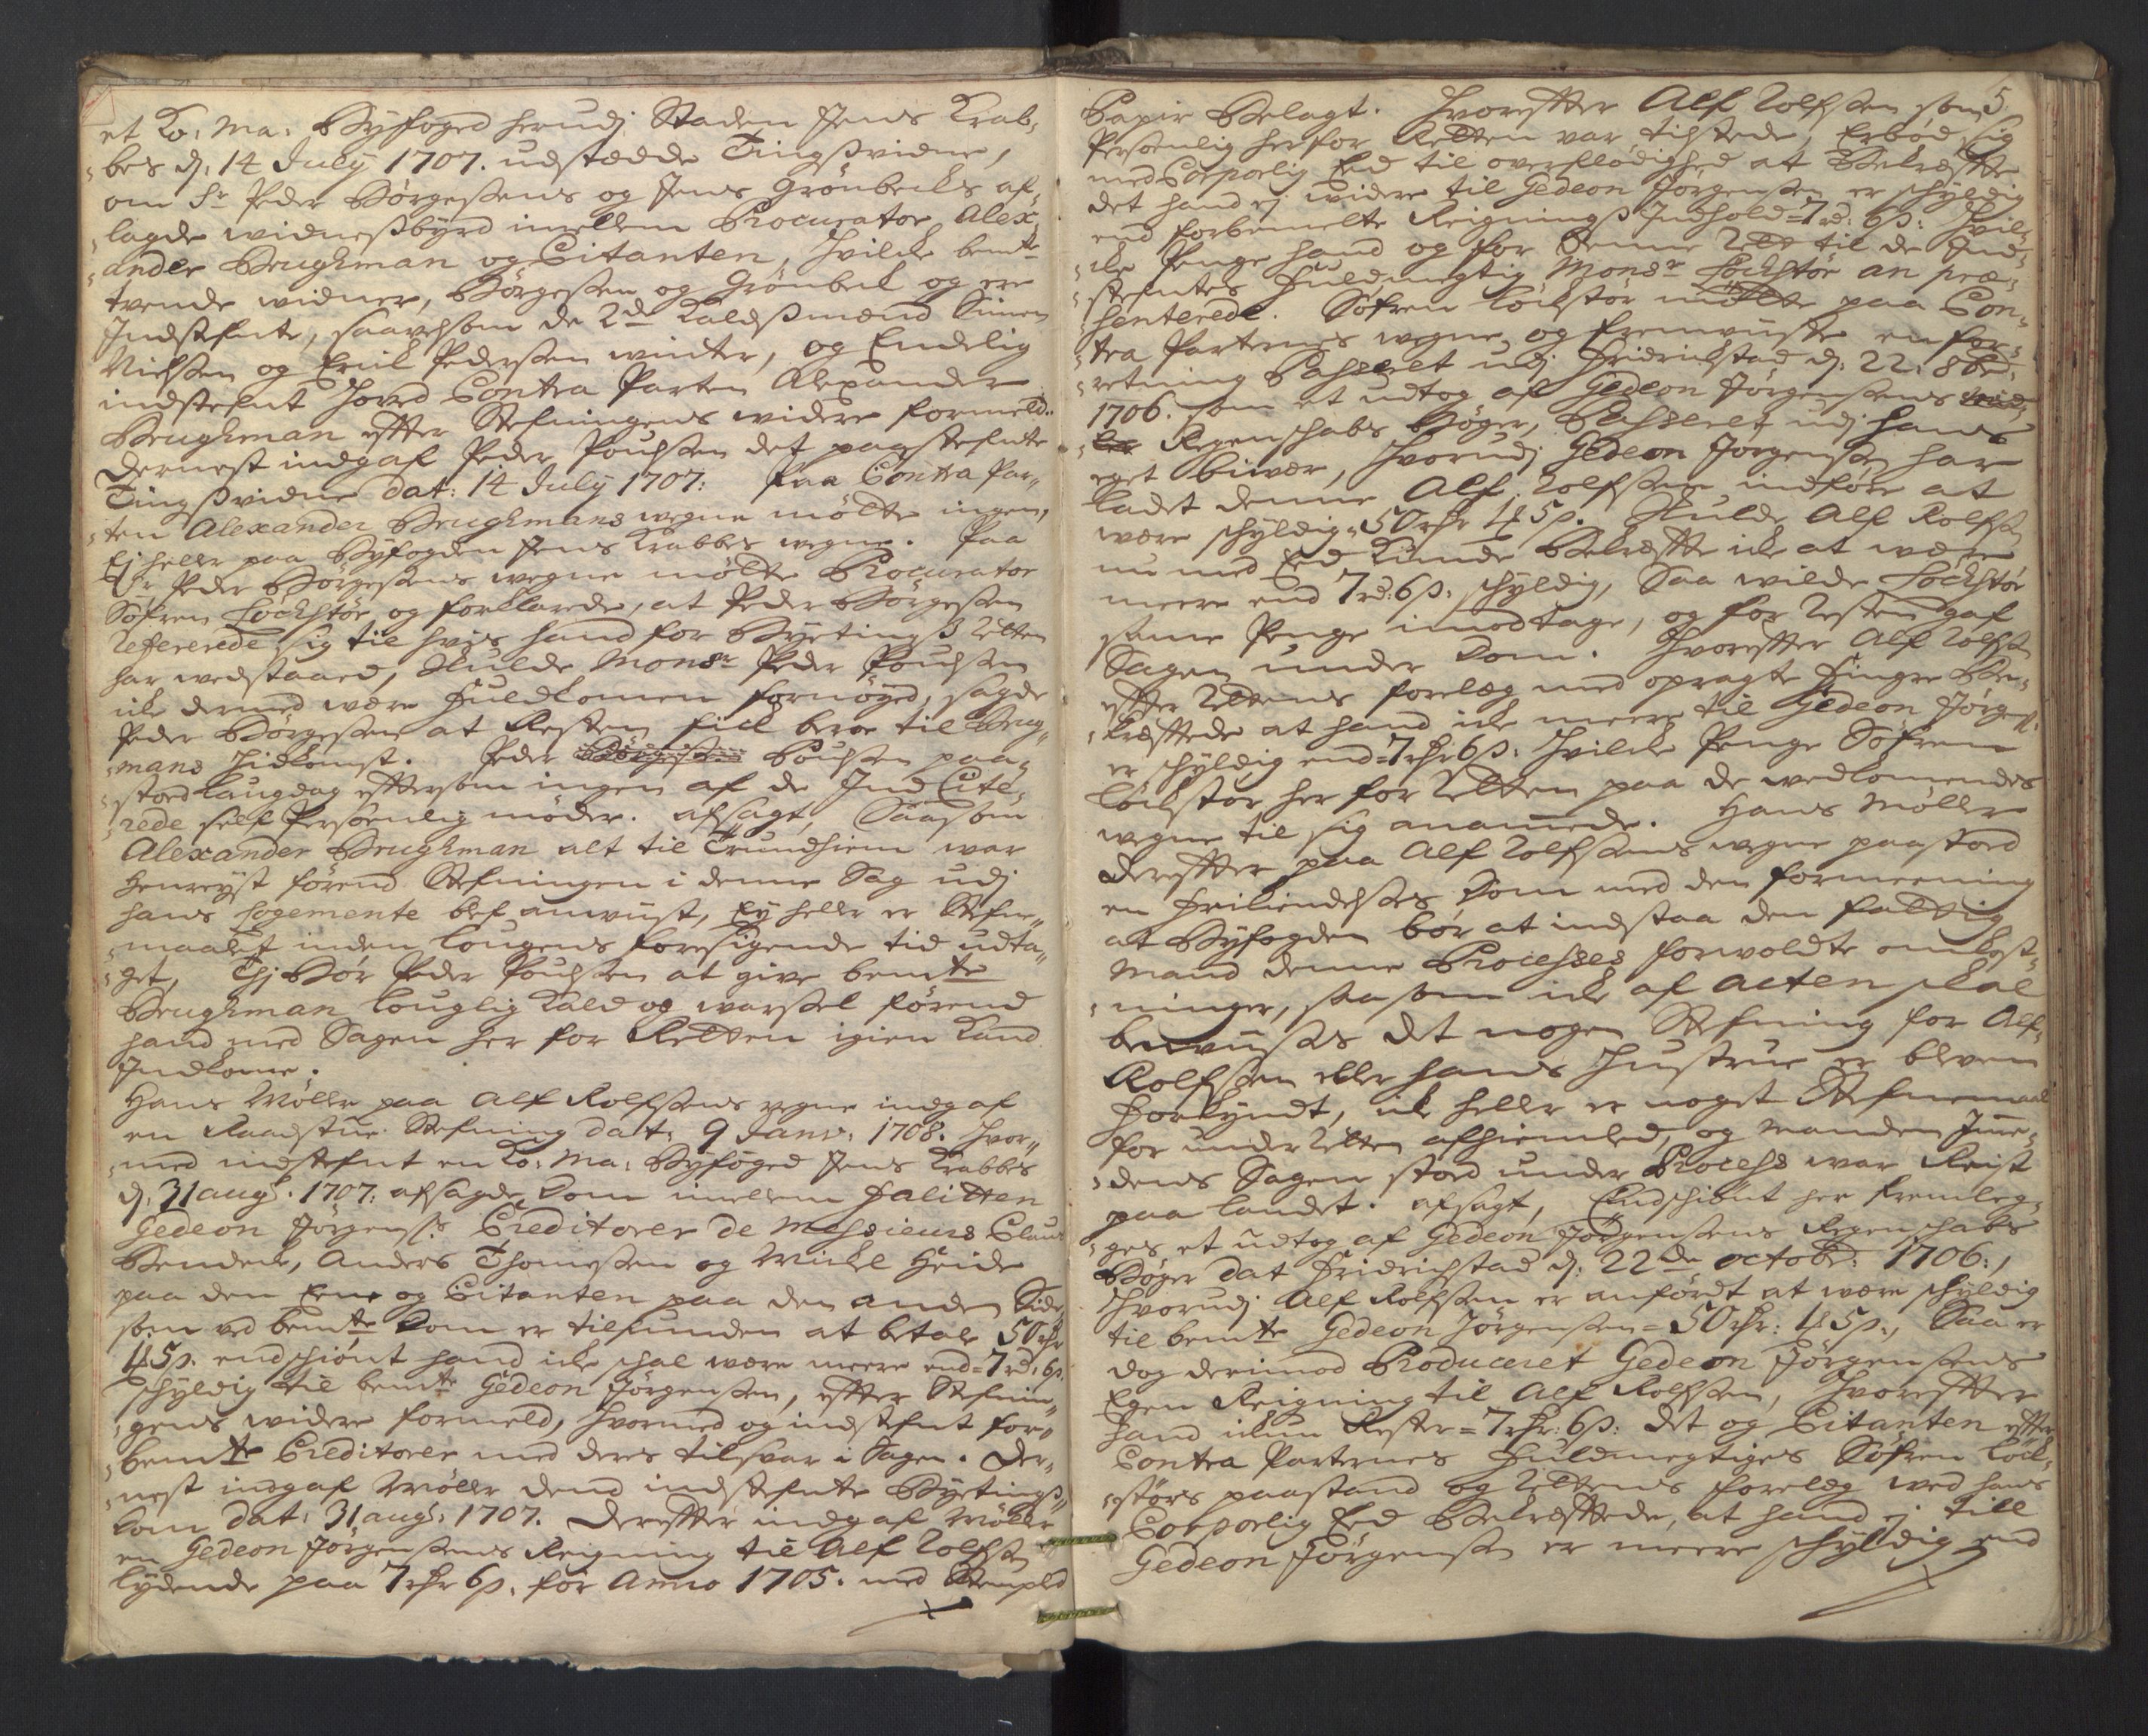 et Ko: Ma: Byfoged herudj Staden Jens Krab,
bes d: 14 July 1707. udstædde Tingsvidne,
om Sr Peder Börgesens og Jens Grönbecks af,
lagde widnesbyrd imellem Procurator Alex,
ander Brughman og Citanten, hvilcke bemte
tvende widner, Börgesen og Grönbek og ere
Indstefnte, saavelsom de 2de Kaldsmænd Simen
Nielsen og Erik Pedersen winter, og Endelig
indstefnt hoved Contra Parten Alexander
Brughman effter Stefningens widere formeld.
Dernest indgaf Peder Pouelsen det paastefnte
Tingsvidne dat: 14 July 1707: Paa Contra Par,,
ten Alexander Brughmans wegne mötte ingen,
Ej heller paa Byfogden Jens Krabbes wegne. Paa
Sr Peder Börgesens wegne mötte Procurator
Söfren Löckstör og forklarede, at Peder Börgesen
Refererede sig til hvis hand for Byetings Retten
har wedstaaed, Skulde Monsr Peder Pouelsen
icke dermed være fuldkomen fornöyed, sagde
Peder Börgesen at Resten fick beroe til Brug,
mans hidkomst. Peder Börgesen Pouelsen paa,
stoed laugdag eftersom ingen af de Ind Cite,
rede self Persoenlig möder. afsagt, Saasom
Alexander Brughman alt til Trundhiem war
henreyst förend Stefningen i denne Sag udj
hans Logemente blef anviist, Ey heller er Stefne,,
maalet inden lougens foresigende tid udta,,
get, Thj Bör Peder Pouelsen at give bemte
Brughman louglig Kald og warsel förend
hand med Sagen her for Retten igien kand
Indkome.
Hans Möller paa Alf Rolfsens vegne indgaf
en Raadstue Stefning dat: 9 Janv: 1708. Hvor,,
med indstefnt en Ko: Ma: Byfoged Jens Krabbes
d: 31 aug: 1707: afsagde Dom imellem Falitten
Gedeon Jörgens: Creditorer de Messieurs Claus
Bendeke, Anders Thomesen og Mickel Heide
paa den Eene og Citanten paa den anden Side,
som ved bemte Dom er tilfunden at betale 50 rdr
4 5 s. endschiönt hand icke schal were meere end= 7 rd: 6 s.
schyldig til bemte Gedeon Jörgensen, effter Stefnin,,
gens widere formeld, hvormed og indstefnt for,,
bemte Creditorer med deres tilsvar i Sagen. Der,,
nest indgaf Möller dend indstefnte Byetings,,
Dom dat: 31 aug: 1707. Dereffter indgaf Möller
en Gedeon Jörgensens Reigning til Alf Rolfsen
lydende paa 7 rdr 6 s. for Anno 1705. med Stemplet
5.
Papir Belagt. Hvoreffter Alf Rolfsen som
Persoenlig herfor Retten var tilstede, Erböd sig
med Corporlig Eed til overflödighed at Bekræffte
det hand ej widere til Gedeon Jörgensen er schyldig
end forbemelte Reignings Indhold= 7 rd: 6 s: Hvil,
cke Penge hand og for denne Rett til de Ind,
stefntes fuldmegtig Monsr Löckstör an præ,
senterede. Söfren Löckstör mötte paa Con,
tra Parternes wegne, og fremviiste en for,
retning Passeret udj Fridrichstad d: 22: 8br.
1706. som et udtog af Gedeon Jörgensens
Regenschabs Böger, Passeret udj hans
eget biwær, hvorudj Gedeon Jörgensen har
ladet denne Alf Rolfsen indföre at
være schyldig= 50 rdr 4 5 s. Skulde Alf Rolfs:
nu med Eed kunde Bekræffte icke at være
meere end 7 rd: 6 s: schyldig, Saa wilde Löckstör
samme Penge imodtage, og for Resten gaf
Sagen under Dom. Hvoreffter Alf Rolfs:
effter Rettens forelæg med opragte Fingre Be,
kræfftede at hand icke meere til Gedeon Jörgens:
er schyldig end= 7 rdr 6 s: Hvilcke Penge Söfren
Löckstör her for Retten paa de wedkomendes
wegne til sig anammede. Hans Möller
dereffter paa Alf Rolfsens wegne paastoed
en Frikiendelses Dom med den formeening
at Byfogden bör at indstaa den fattig
Mand denne Processes forvoldte omkost,
ninger, saasom icke af acten skal
beviises det nogen Stefning for Alf
Rolfsen eller hans Hustrue er bleven
forkyndt, icke heller er noget Stefnemaal
for under Retten afhiemled, og manden Ime,
dens Sagen stoed under Process war Reist
paa landet. afsagt, Endschiönt her fremleg,
ges et udtog af Gedeon Jörgensens Regenschabs
Böger dat Fridrichstad d: 22de octobr: 1706:,
Hvorudj Alf Rolfsen er anfördt at være schyldig
til bemte Gedeon Jörgensen= 50 rdr: 4 5 s:, Saa er
dog derimod Produceret Gedeon Jörgensens
Egen Reigning til Alf Rolfsen, hvoreffter
hand ikun Rester= 7 rdr: 6 s: det og Citanten effter
Contra Parternes fuldmegtiges Söfren Löck,
störs paastand og Rettens forelæg wed hans
Corporlig Eed Bekræfftede, at hand ej till
Gedeon Jörgensen er meere schyldig end